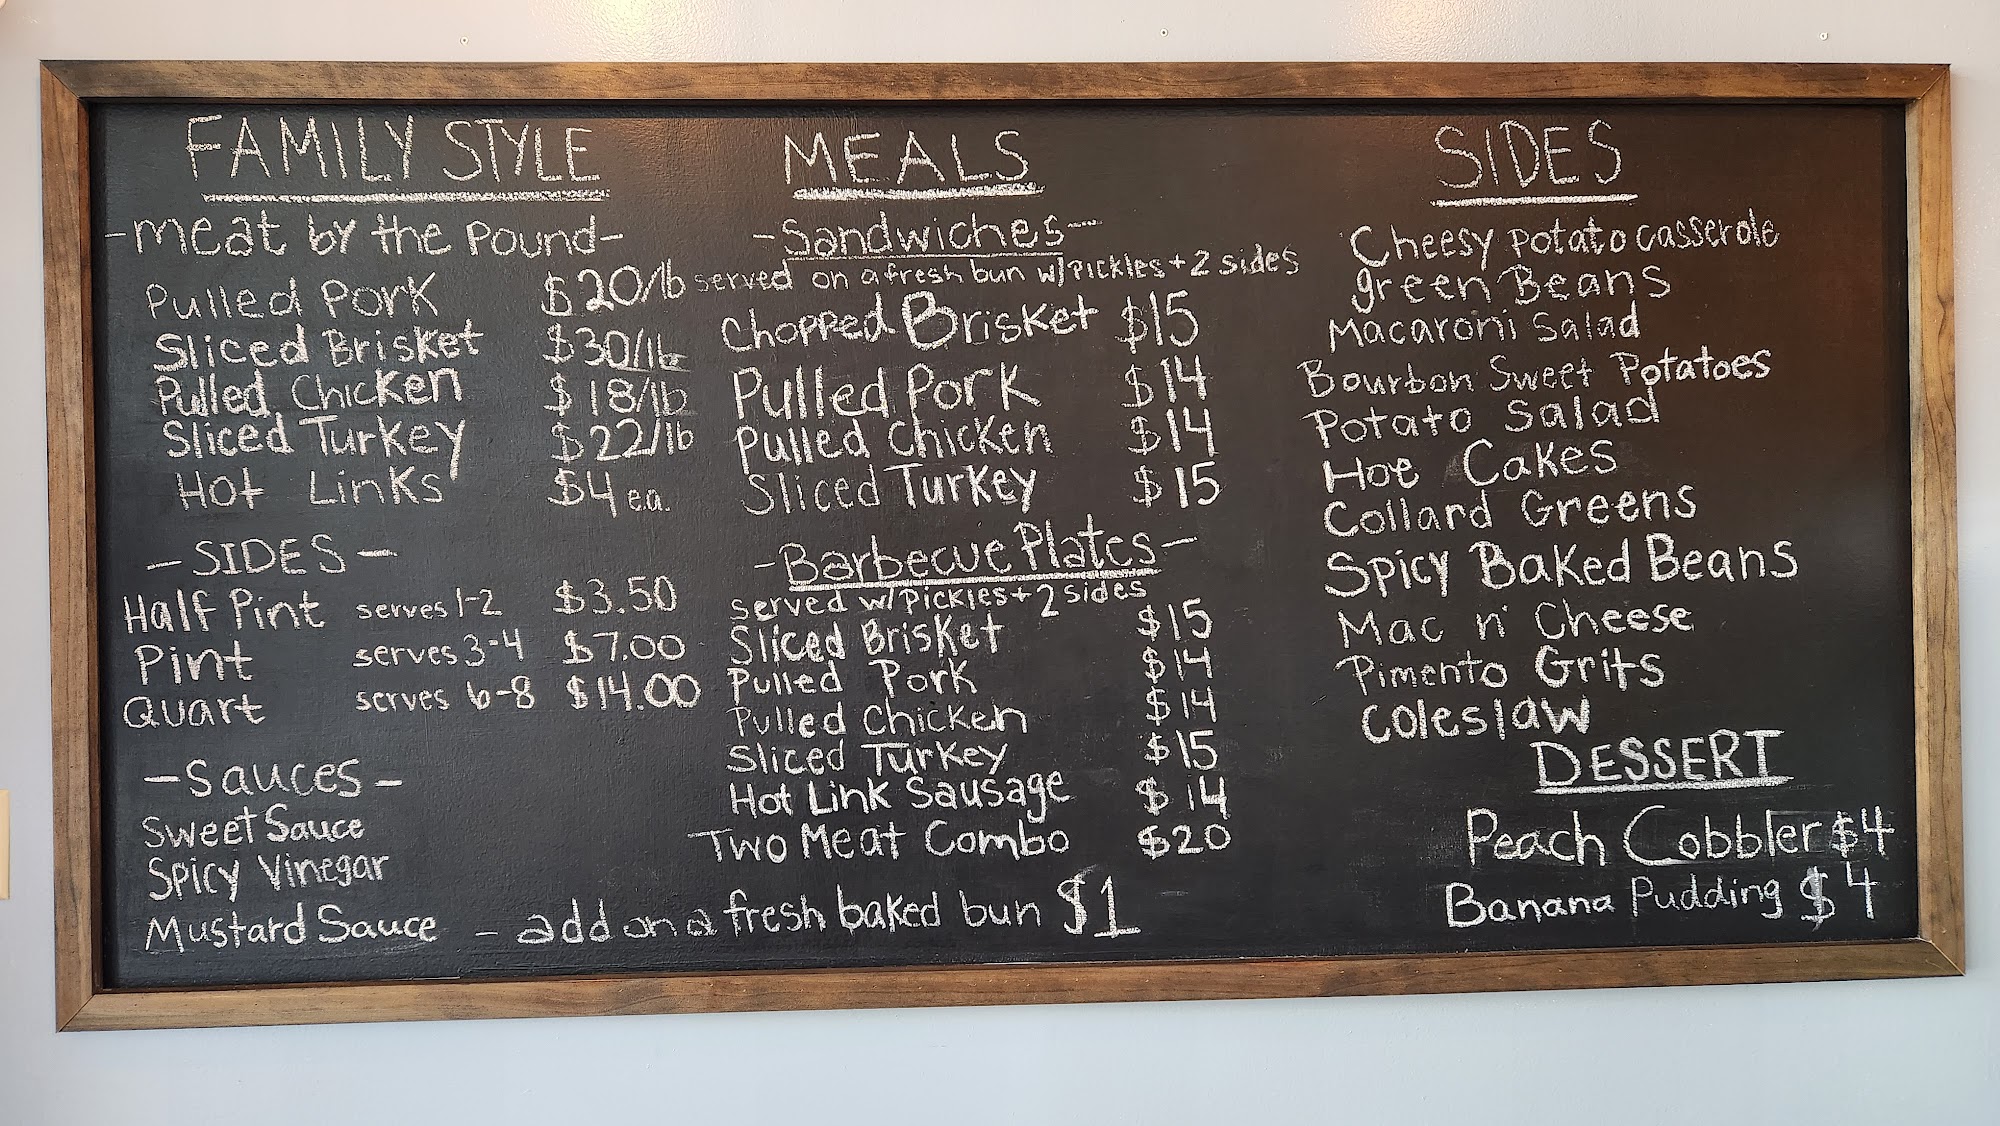 FAMILY STYLE
-meat by the Pound-
Pulled Pork $20/lb
Sliced Brisket $30/lb
Pulled Chicken $18/lb
Sliced Turkey $22/lb
Hot Links $4 ea.
- SIDES -
Half Pint serves 1-2 $3.50
Pint serves 3-4 $7.00
Quart serves 6-8 $14.00
- Sauces -
Sweet Sauce
Spicy Vinegar
Mustard Sauce
MEALS
- Sandwiches -
served on a fresh bun w/Pickles + 2 sides
Chopped Brisket $15
Pulled Pork $14
Pulled Chicken $14
Sliced Turkey $15
- Barbecue Plates -
served w/Pickles + 2 sides
Sliced Brisket $15
Pulled Pork $14
Pulled Chicken $14
Sliced Turkey $15
Hot Link Sausage $14
Two Meat Combo $20
- add on a fresh baked bun $1
SIDES
Cheesy Potato casserole
green Beans
Macaroni Salad
Bourbon Sweet Potatoes
Potato Salad
Hoe Cakes
Collard Greens
Spicy Baked Beans
Mac n' Cheese
Pimento Grits
Coleslaw
DESSERT
Peach Cobbler $4
Banana Pudding $4